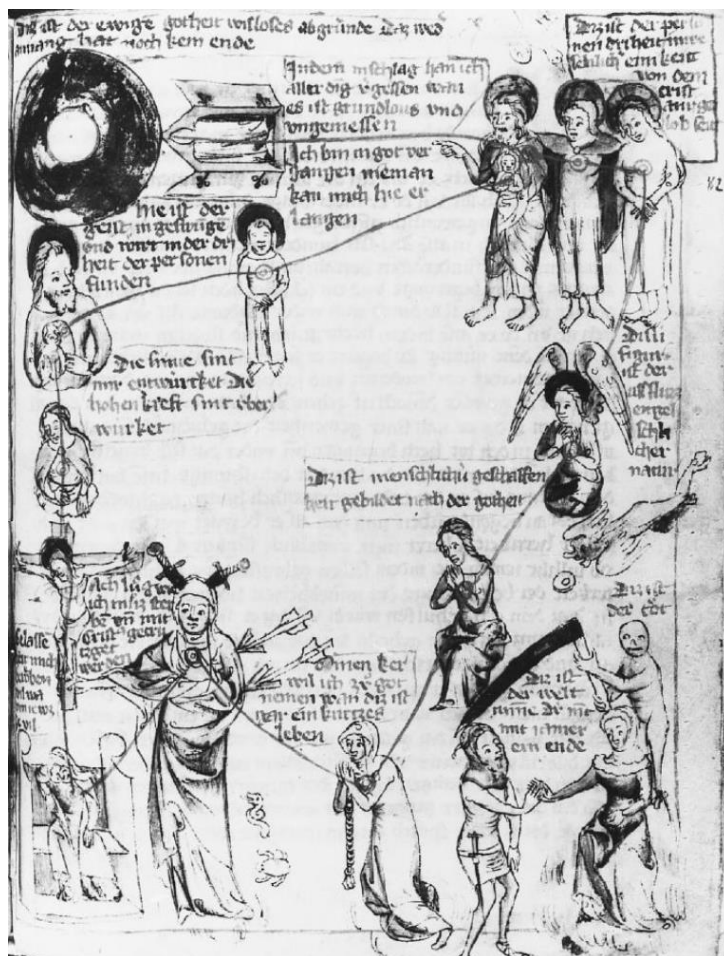 Diz ist der ewige gotheit wisloses abgrunde Daz wed
anuang hat noch kein ende
Diz ist der perso
nen driheit in we
schlich einikeit
von dem
crist
glob seit
Indem inschlag han ich
aller ding vgessen wan
es ist grundlaus vnd
vngemessen
Ich bin in got ver
gangen nieman
kan mich hie er
langen
hie ist der
geist in geswinge
vnd wirt in der dri
heit der personen
funden
Die sinne sint
mir entwürket Die
hohen kreft sint über
würket
Disü
figur
ist der
usflus
engel
schli
cher
natur
Diz ist menschlichü geschaffen
heit gebildet nach der gotheit
Ach lüg wi
ich müz ster
ben vn mit
crist gecrü
tzget
werden
Diz ist
der tot
deinen ker
wil ich zü got
nemen wan diz ist
gar ein kurtzes
leben
Diz ist
der welt
minne Dv nit
mit iamer
ein ende